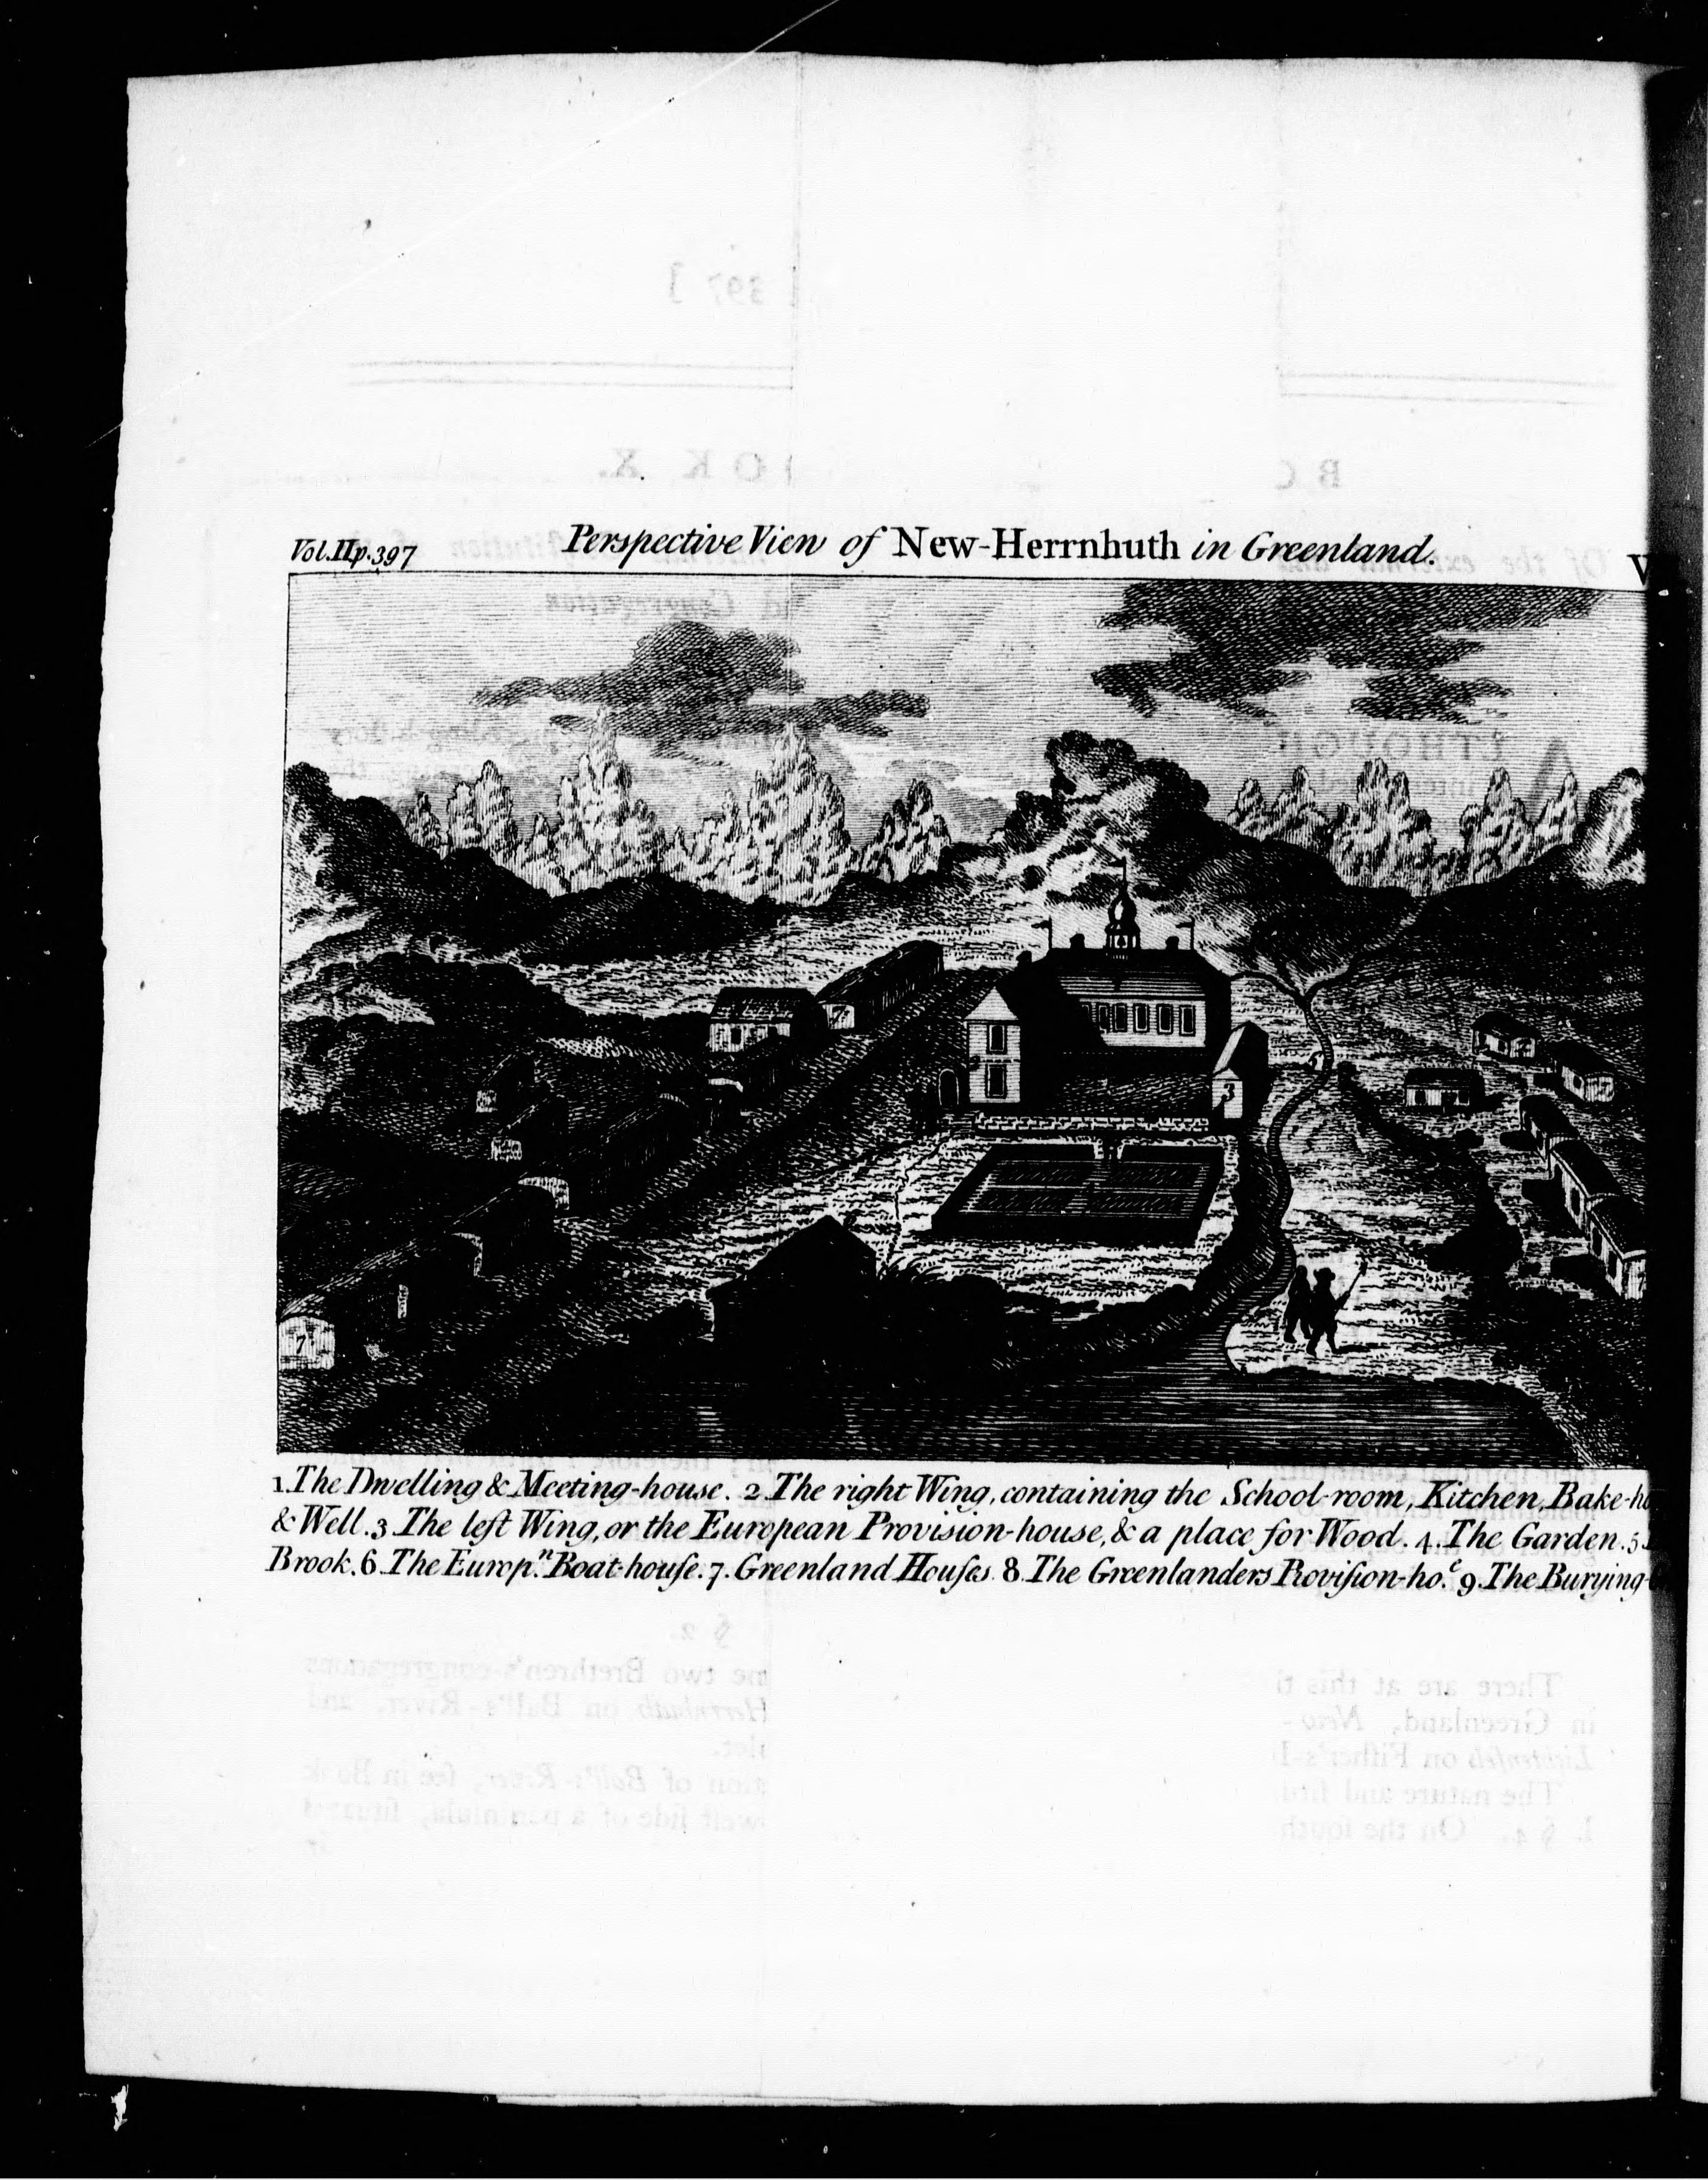 Vol.II p.397
Perspective View of New-Herrnhuth in Greenland.
3
7
1. The Dwelling & Meeting-house. 2 The right Wing, containing the School-room, Kitchen, Bake-
& Well. 3 The left Wing, or the European Provision-house, & a place for Wood. 4. The Garden. 5
Brook. 6. The Europ.n Boat-houſe. 7. Greenland Houſes 8. The Greenlanders Proviſion-ho.e 9. The Burying-